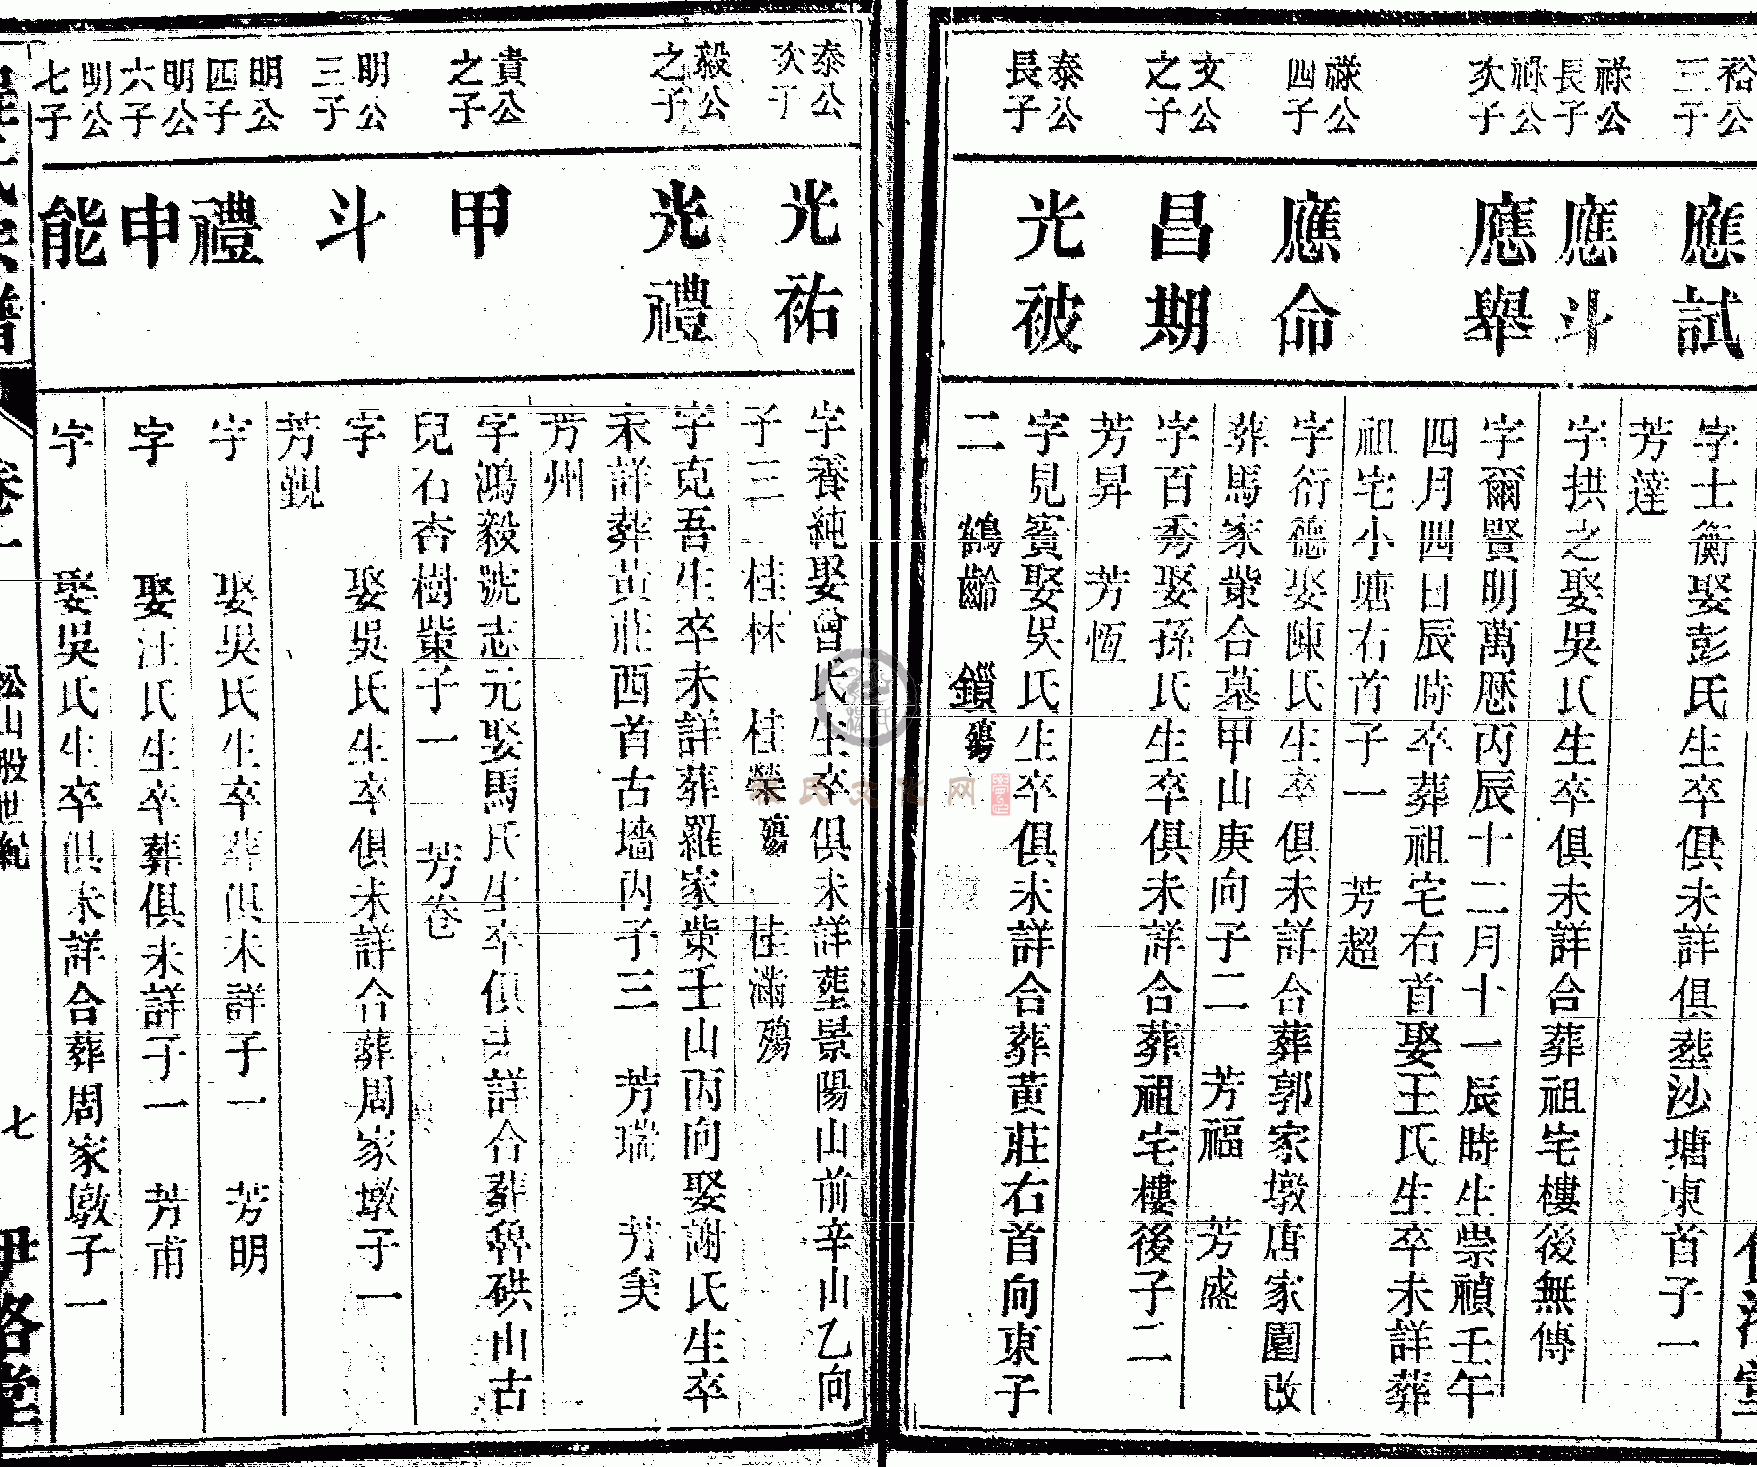 裕公三子
應試
字士衡娶彭氏生卒俱未詳俱塟沙塘東首子一
芳達
祿公長子
應斗
字拱之娶吳氏生卒俱未詳合葬祖宅樓後無傳
祿公次子
應舉
字爾賢明萬曆丙辰十二月十一辰時生崇禎壬午
四月四日辰時卒葬祖宅右首娶王氏生卒未詳葬
祖宅小塘右首子一 芳超
祿公四子
應命
字衍德娶陳氏生卒俱未詳合葬郭家墩唐家園改
葬馬家塋合墓甲山庚向子二 芳福 芳盛
文公之子
昌期
字百秀娶孫氏生卒俱未詳合葬祖宅樓後子二
芳昇 芳恆
泰公長子
光被
字見賓娶吳氏生卒俱未詳合葬黃莊右首向東子
二 鶴齡 鎖殤
泰公次子
光祐
字養純娶曾氏生卒俱未詳塟景陽山前辛山乙向
子三 桂林 桂榮殤 桂滿殤
毅公之子
光禮
字克吾生卒未詳葬羅家塋壬山丙向娶謝氏生卒
未詳葬黃莊西首古墻內子三 芳瑞 芳美
芳州
貴公之子
甲
字鴻毅號志元娶馬氏生卒俱未詳合葬碑硔山古
兒石杏樹塋子一 芳卷
明公三子
斗
字 娶吳氏生卒俱未詳合葬周家墩子一
芳觀
明公四子
禮
字 娶吳氏生卒葬俱未詳子一 芳明
明公六子
申
字 娶汪氏生卒葬俱未詳子一 芳甫
明公七子
能
字 娶吳氏生卒俱未詳合葬周家墩子一
氏宗譜 卷一 松山股世紀 七 伊洛堂